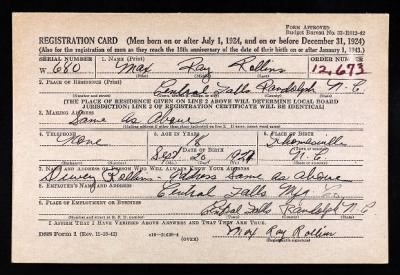 Form Approved
Budget Bureau No. 33-R012-42
REGISTRATION CARD—(Men born on or after July 1, 1924, and on or before December 31, 1924)
(Also for the registration of men as they reach the 18th anniversary of the date of their birth on or after January 1, 1943.)
SERIAL NUMBER 1. NAME (Print) ORDER NUMBER
W 680 Max Ray Rollins 12,673
(First) (Middle) (Last)
2. PLACE OF RESIDENCE (Print)
Central Falls Randolph N.C.
[THE PLACE OF RESIDENCE GIVEN ON LINE 2 ABOVE WILL DETERMINE LOCAL BOARD
JURISDICTION; LINE 2 OF REGISTRATION CERTIFICATE WILL BE IDENTICAL]
3. MAILING ADDRESS
Same as Above
4. TELEPHONE 5. AGE IN YEARS 6. PLACE OF BIRTH
None 18 Thomasville
DATE OF BIRTH
Sept 20 1924 N.C.
7. NAME AND ADDRESS OF PERSON WHO WILL ALWAYS KNOW YOUR ADDRESS
Dewey Rollins - Address Same as above
8. EMPLOYER'S NAME AND ADDRESS
Central Falls Mfg
9. PLACE OF EMPLOYMENT OR BUSINESS
Central Falls Randolph N.C.
I AFFIRM THAT I HAVE VERIFIED ABOVE ANSWERS AND THAT THEY ARE TRUE.
DSS Form 1 (Rev. 11-16-42) (OVER) Max Ray Rollins